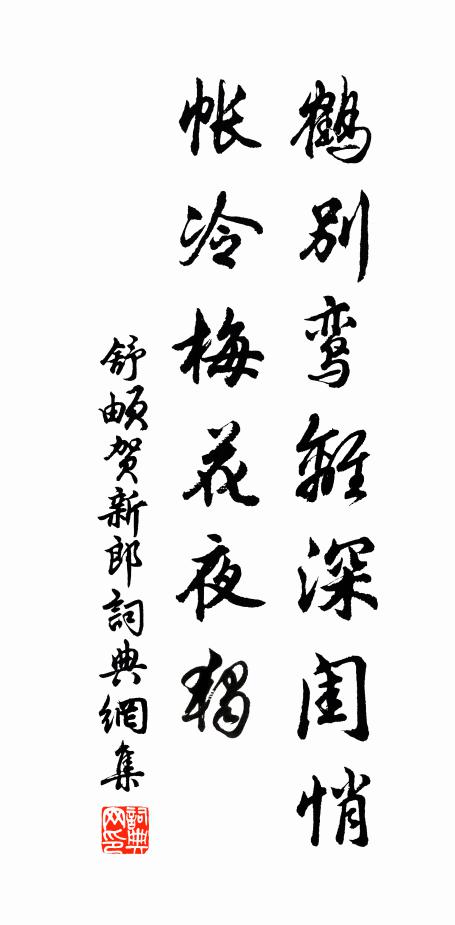 鹤别鸾離深闺悄
帐冷梅花夜獨
舒頔贺新郎詞典網集
詞典网印